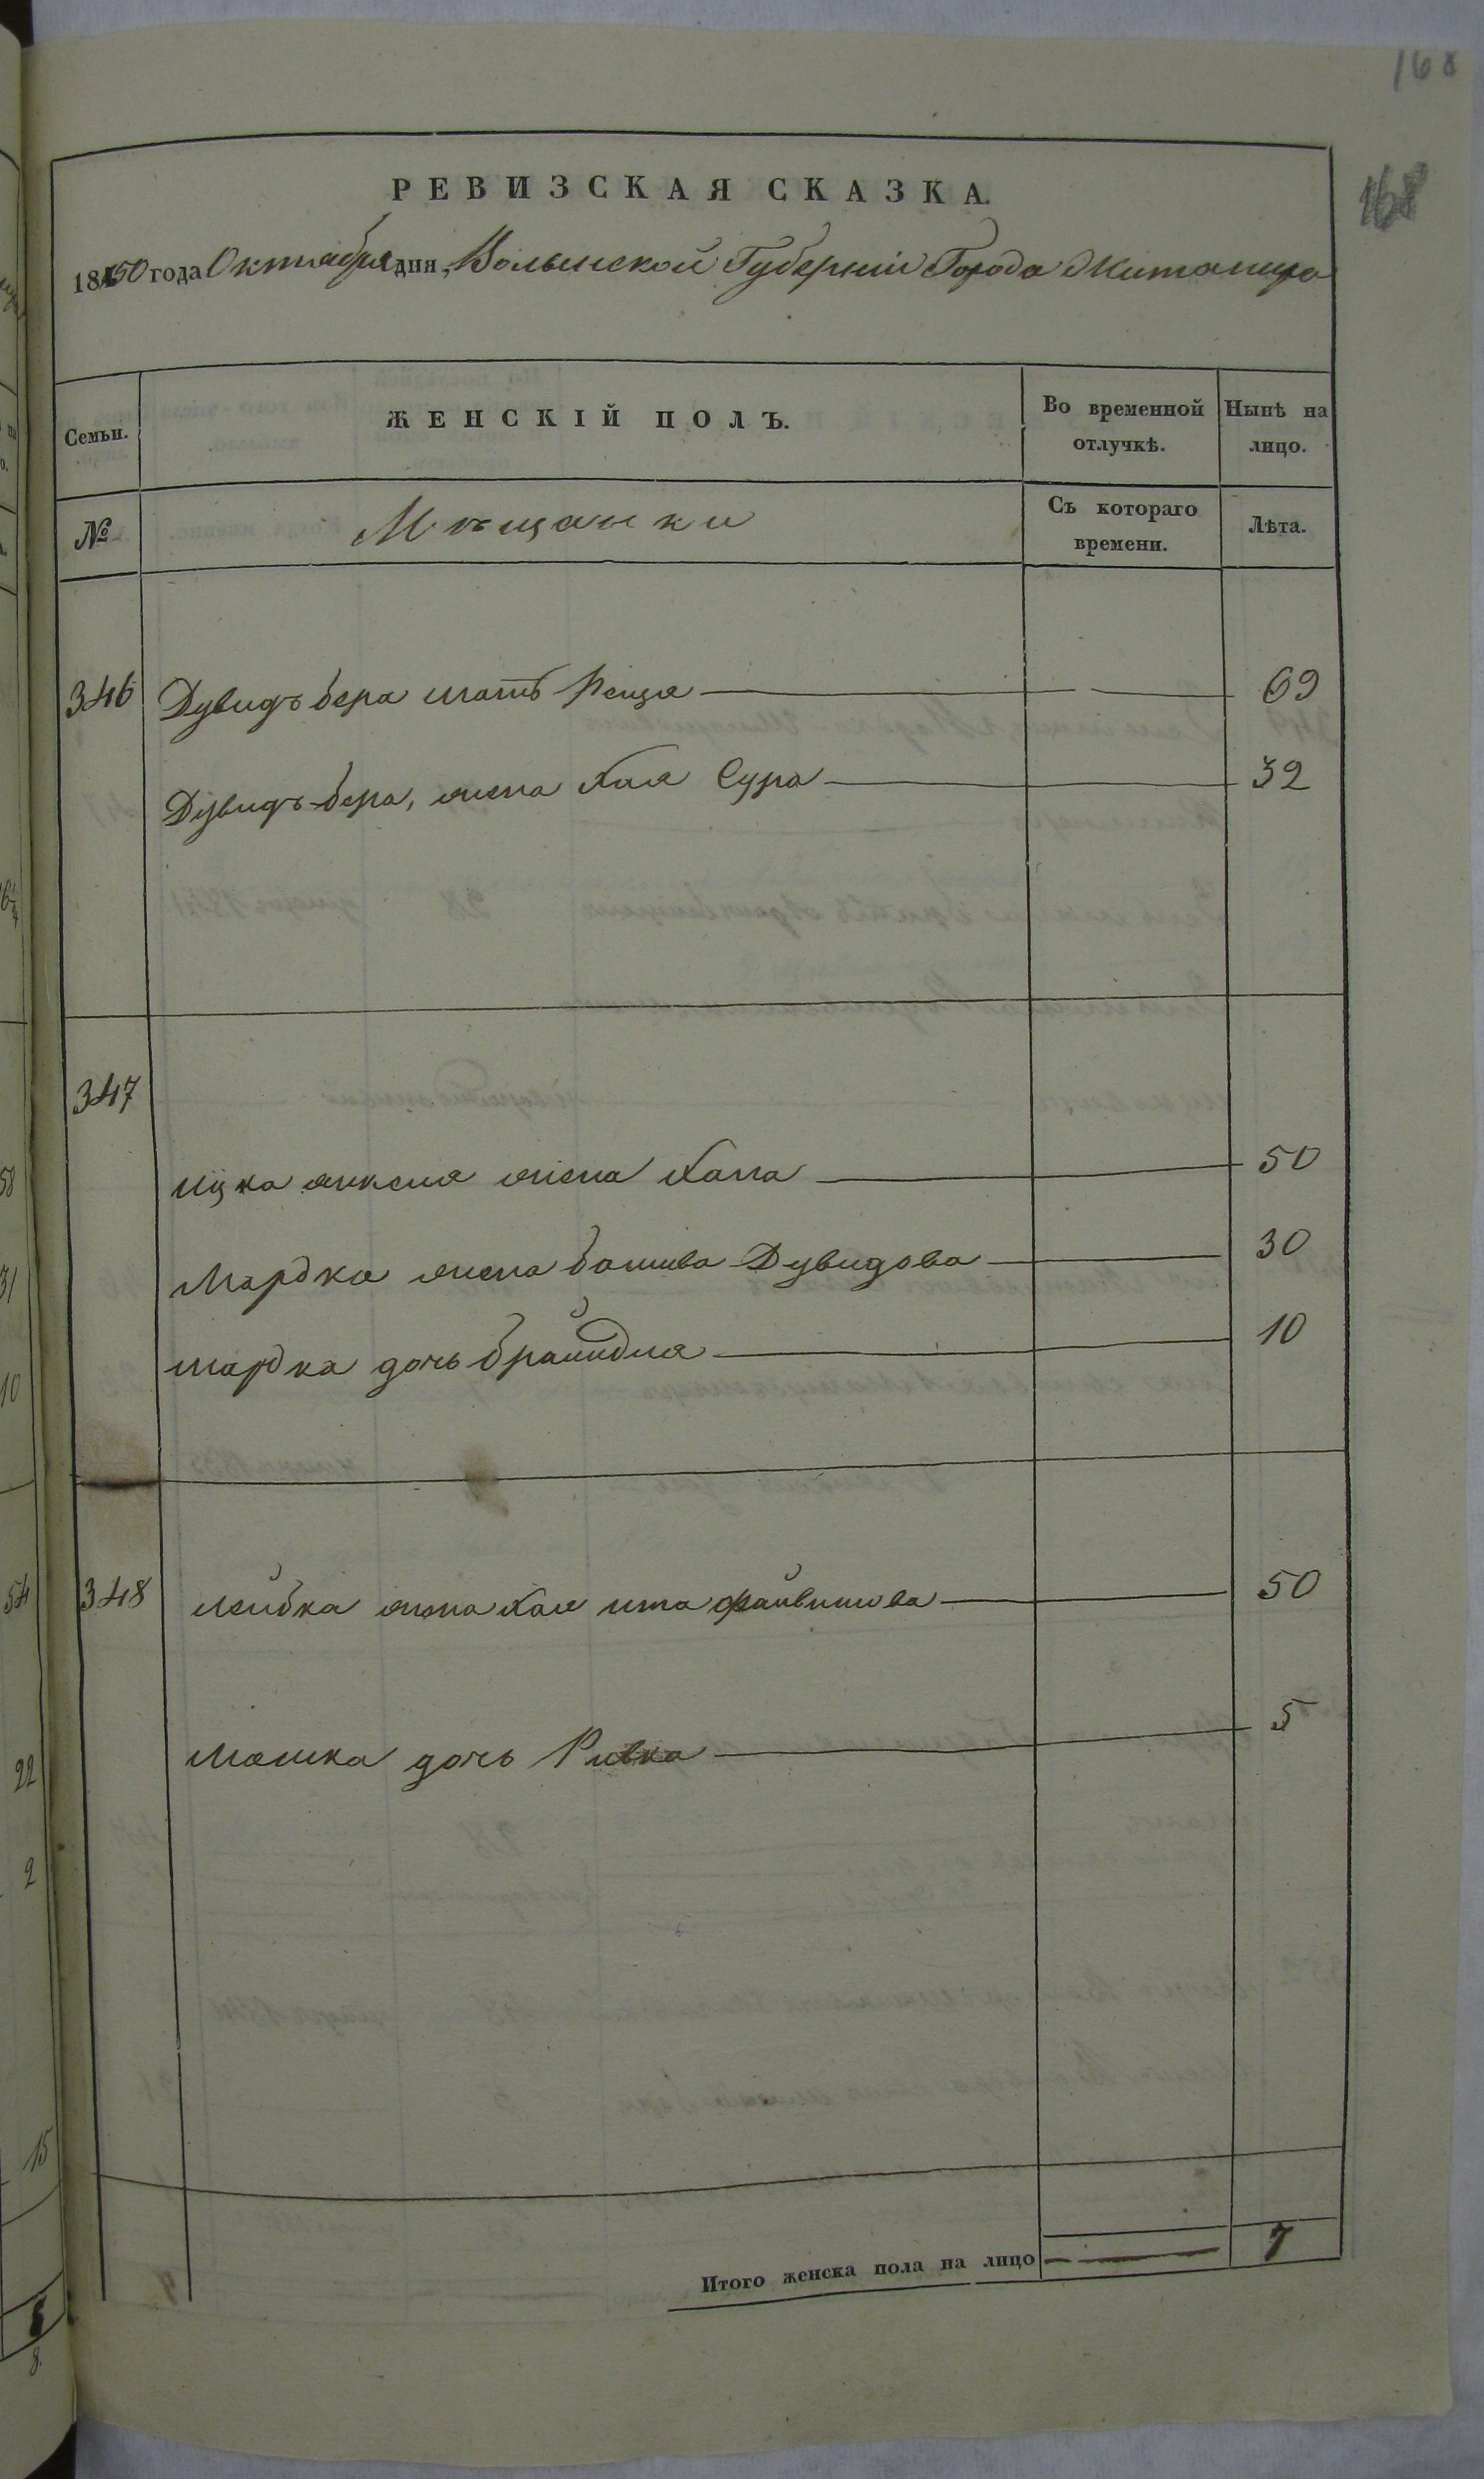 168
168
РЕВИЗСКАЯ СКАЗКА.
1850 года Октября дня, Волынской Губернии Города Житомира
Семьи.
ЖЕНСКІЙ ПОЛЪ.
Во временной отлучкѣ.
Нынѣ на лицо.
№
Мѣщанки
Съ котораго времени.
Лѣта.
346 Дувидъ бера мать Рейзя 69
Дувидъ-бера, жена Хая Сура 32
347
Ицка жена Хана 50
Мордка жена башива Дувидова 30
мордка дочь брайндля 10
348 лейбка жена Хая ита файвишова 50
Мошка дочь Ривка 5
Итого женска пола на лицо — 7